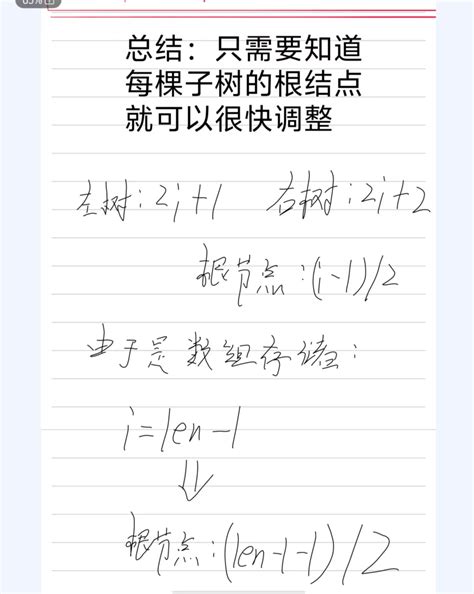 总结：只需要知道
每棵子树的根结点
就可以很快调整
左树：2i+1 右树：2i+2
根节点：(i-1)/2
由于是数组存储：
i=len-1
⇓
根节点：(len-1-1)/2